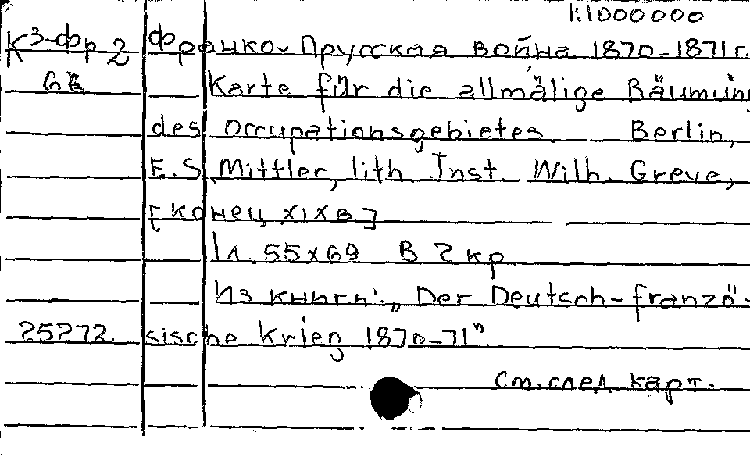 1:1000000
К3-Фр 2 Франко-Прусская война 1870-1871г.
Karte für die allmälige Räumung
des Occupationsgebietes. Berlin,
E.S. Mittler, lith Inst. Wilh. Greve,
[конец XIX в]
1л. 55x69 В 2 кр
Из книги: „Der Deutsch-franzö-
25272. sische Krieg 1870-71"
См. след. карт.